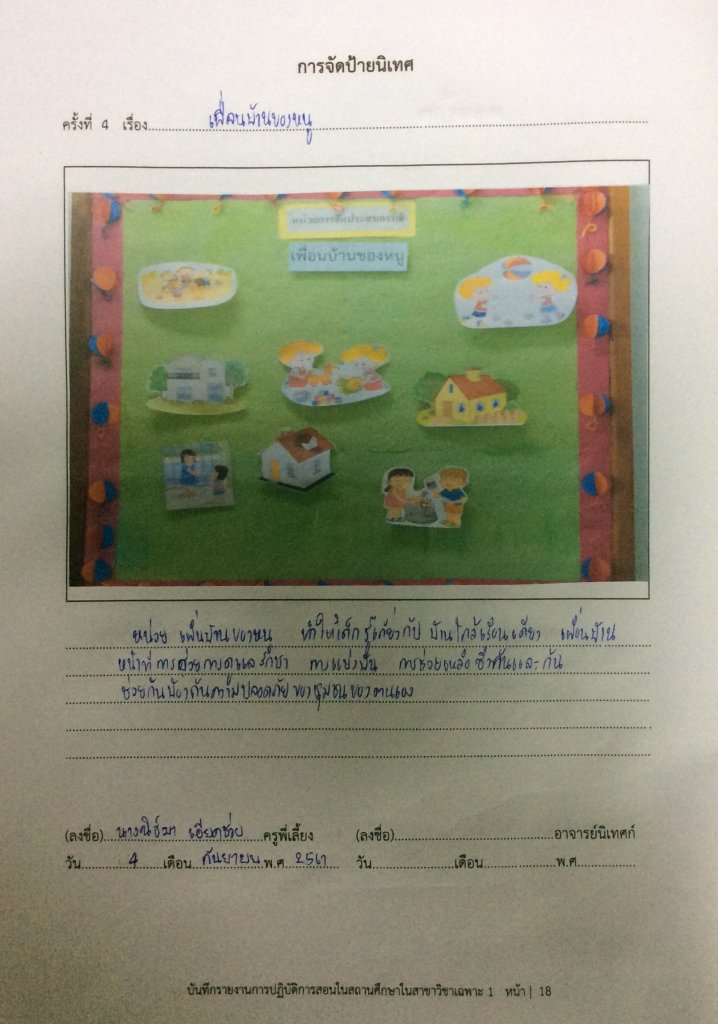 การจัดป้ายนิเทศ
ครั้งที่ 4 เรื่อง เพื่อนบ้านของหนู
หน่วยการจัดประสบการณ์
เพื่อนบ้านของหนู
หน่วย เพื่อนบ้านของหนู ทำให้เด็กรู้เกี่ยวกับ บ้านใกล้เรือนเคียง เพื่อนบ้าน
หน้าที่ การช่วยการดูแลรักษา การแบ่งปัน การช่วยเหลือซึ่งกันและกัน
ช่วยกันป้องกันความปลอดภัยของชุมชนของตนเอง
(ลงชื่อ) ครูพี่เลี้ยง (ลงชื่อ) อาจารย์นิเทศก์
วัน 4 เดือน กันยายน พ.ศ. 2561 วัน เดือน พ.ศ.
บันทึกรายงานการปฏิบัติการสอนในสถานศึกษาในสาขาวิชาเฉพาะ 1 หน้า | 18